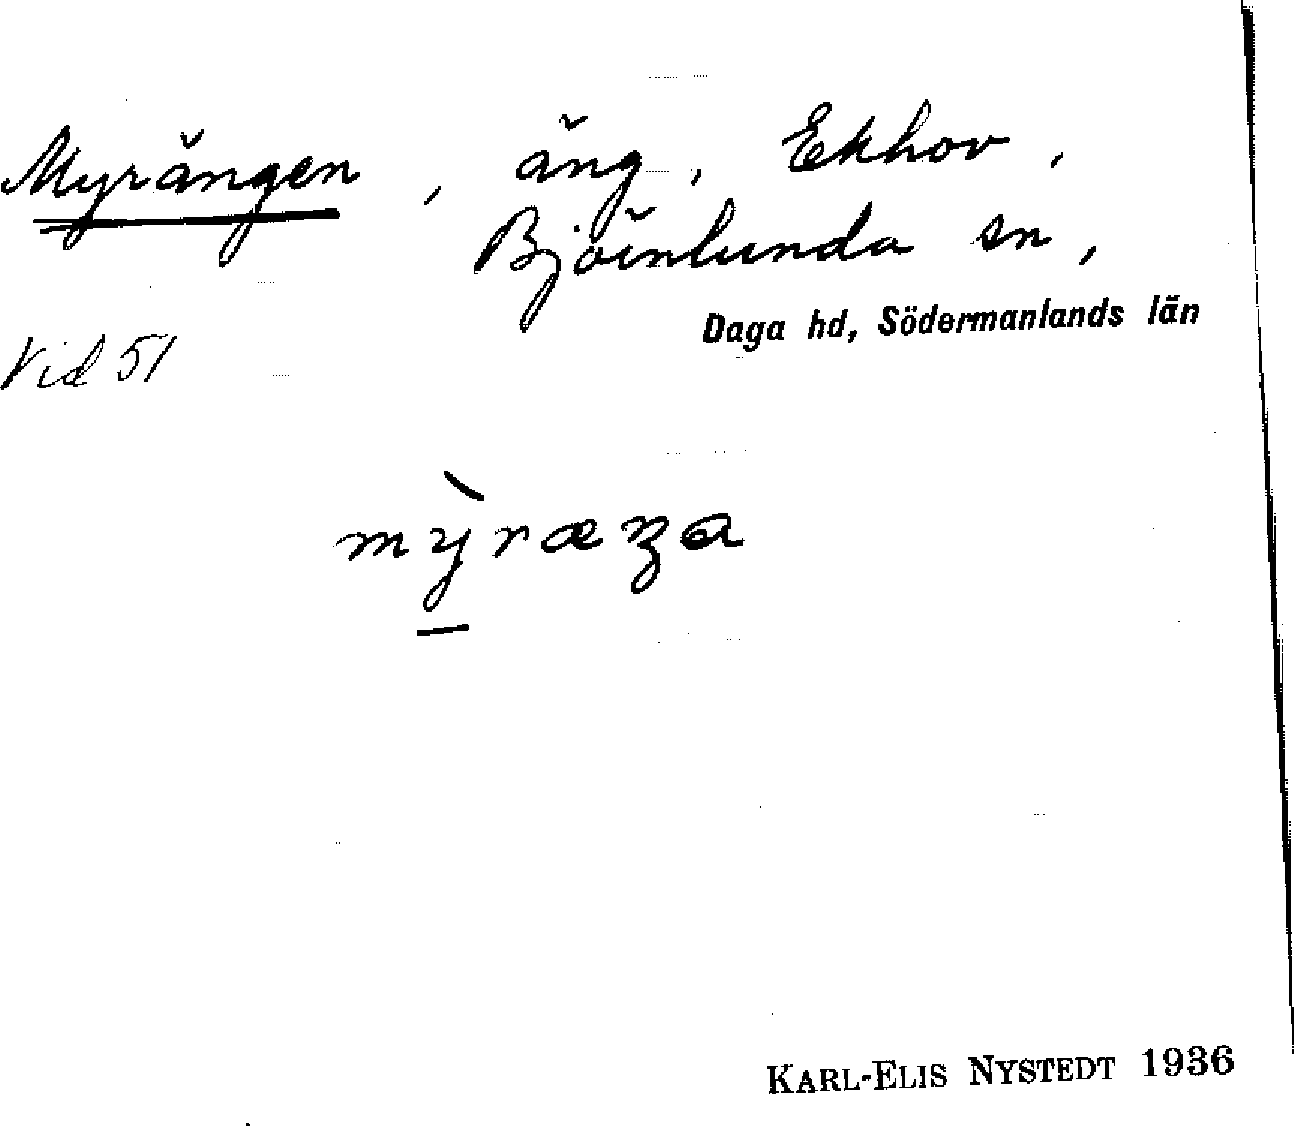 Myrängen, äng, Ekhov,
Björnlunda sn,
Daga hd, Södermanlands län
Vid 51
mỳræŋa
KARL-ELIS NYSTEDT 1936